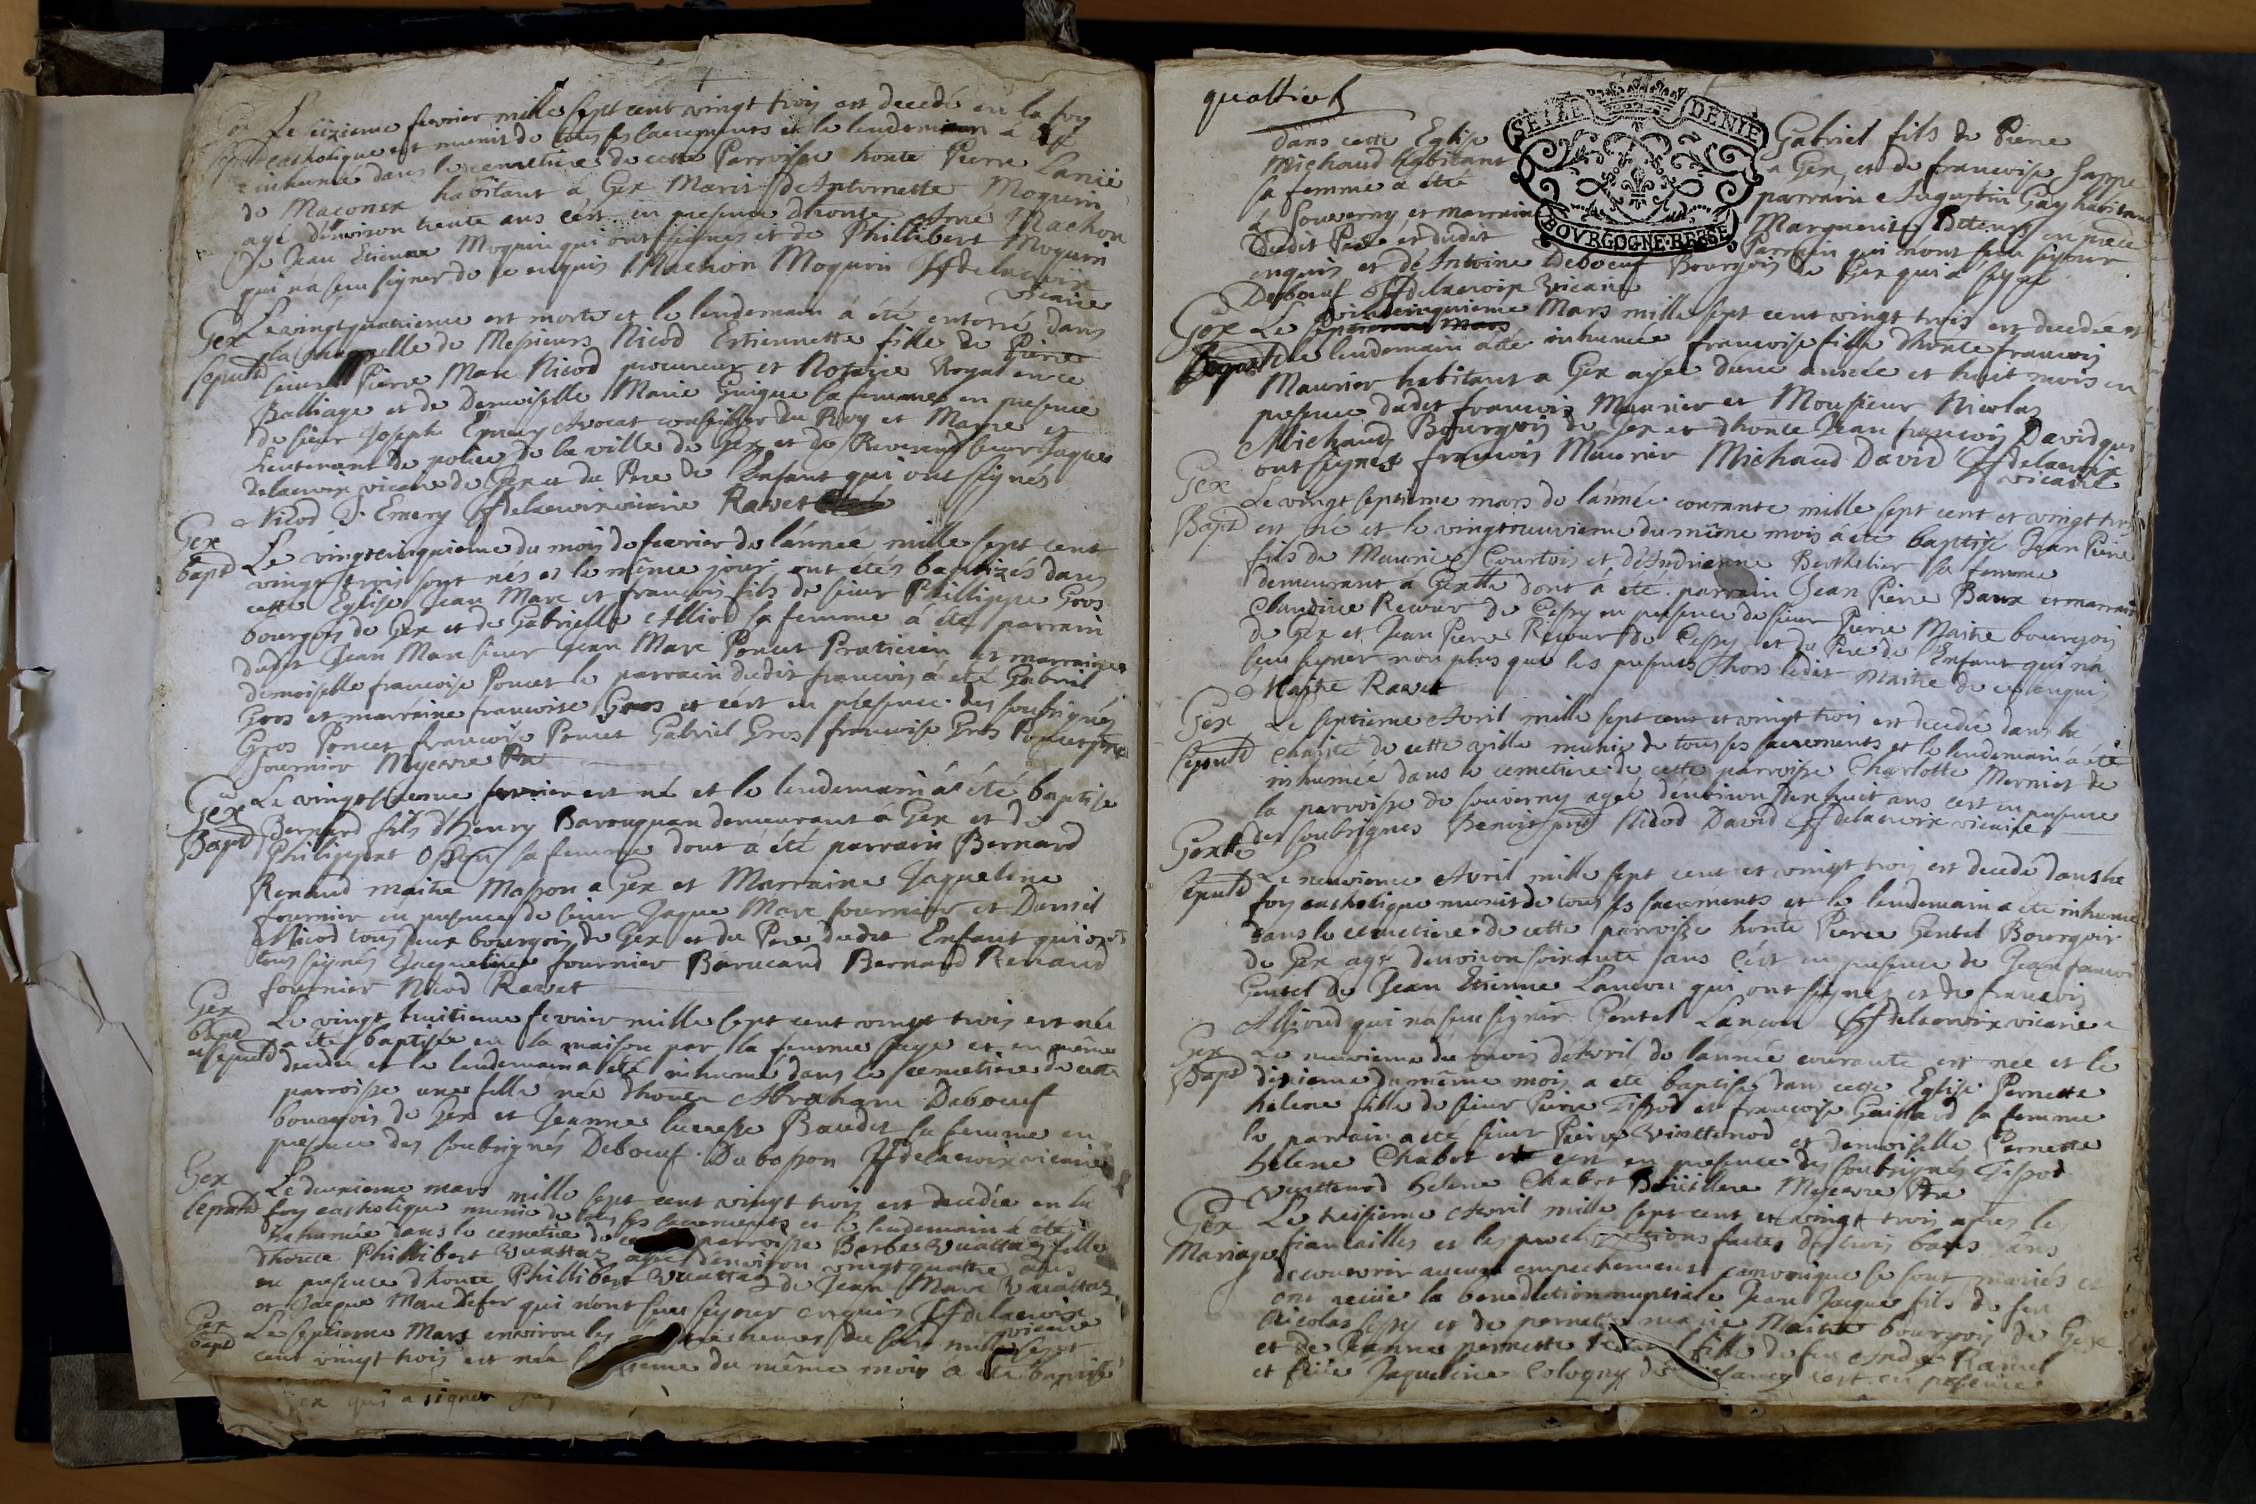 Le sizieme fevrier mille sept cent vingt trois est decedé en la foy
catholique et munit de tous ses sacrements et le lendemain a été
inhumé dans le cemetiere de cette Parroisse honte Pierre Lanié
de Maconex habitant à Gex Maris de Anthoinette Moquin
agé denviron trente ans c'est en presence dhonte Machon
de Jean Etienne Moquin qui ont signés et de Phillibert Moquin
qui n'a sceu signer de ce enquis Machon Moquin JfDelacroix
vicaire
Gex Le vingtquatrieme est morte et le lendemain à été enterré dans
sepult la chappelle de Messieurs Nicod Estiennette fille de
sieur Pierre Marc Nicod procureur et Notaire Royal en ce
Balliage et de Demoiselle Marie Guigue sa femme en presence
de sieur Joseph Emery Avocat conseiller du Roy et Maire et
Lieutenant de police de la ville de Gex et de Reverend sieur Jaque
Delacroix vicaire de Gex et du Pere de l'Enfant qui ont signés
Nicod J. Emery Jfdelacroix vicaire Ravet
Gex Le vingtcinquieme du mois de fevrier de l'année mille sept cent
bapt vingt trois sont nés et le même jour ont étés baptizés dans
cette Eglise Jean Marc et francois fils de sieur Phillippe Gros
bourgois de Gex et de Gabrielle Alliod sa femme à été parrain
dudit Jean Marc sieur Jean Marc Poncet Praticien et marraine
demoiselle francoise Poncet le parrain dudit francois à été Gabriel
Gros et marraine francoise Gros et c'est en présence des soubsignés
Gros Poncet francoise Poncet Gabriel Gros francoise Gros Poncet
fournier
Gex Le vingt fevrier est né et le lendemain à été baptisé
Bapt Bernard fils d'henry Barouquan demeurant à Gex et de
sa femme dont à été parrain Bernard
Renaud maitre Masson a Gex et Marraine Jaqueline
fournier en presence de sieur Jaque Marc fournier et Daniel
Nicod tous deux bourgois de Gex et du Pere dudit Enfant qui ont
tous signés Jacqueline fournier Barucand Bernard Renaud
fournier Nicod Ravet
Gex Le vingt huitieme fevrier mille sept cent vingt trois est née
bapt a été baptisée en la maison par la femme sage et en même
et sepult decedée et le lendemain a été inhumé dans le cemetiere de cette
parroisse une fille née dhonte Abraham Deboeuf
bourgois de Gex et Jeanne lucresse Baudit sa femme en
presence des soubsignés Deboeuf Dubosson Jfdelacroix vicaire
Gex Le deuxieme mars mille sept cent vingt trois est decedée en la
sepult foy catholique munie de tous ses sacrements et le lendemain à été
inhumée dans le cemetiere de parroisse Barbe Vuattaz fille
dhonte Phillibert Vuattaz agée d'environ vingtquattre ans
en presence dhonte Phillibert Vuattaz de Jean Marc Vuattaz
et Jacque Marc Defer qui n'ont sceu signer enquis Jfdelacroix
vicaire
Gex Le septieme Mars environ les heures du soir mille sept
bapt cent vingt trois est née du même mois a été baptisé
qui a signer
quattre
dans cette Eglise Gabriel fils de Pierre
Michaud habitant a Gex et de francoise
sa femme a été parrain Augustin Gay habitant
à Souverny et marraine Marguerite en presence
Dudit Pere et dudit Parrain qui n'ont sceu signer
enquis et de Antoine Deboeuf Bourgois de Gex qui a signé
Deboeuf Jfdelacroix Vicaire
SEIZE DENIE
BOVRGOGNE·BRESSE
Gex Le vintcinquieme Mars mille sept cent vingt trois est decedée et
le lendemain a été inhumée francoise fille dhonte francois
Maurier habitant a Gex agée d'une année et huit mois en
presence dudit francois Maurier et Monsieur Nicolas
Michaud Bourgois de Gex et dhonte Jean francois David qui
ont signés francois Maurier Michaud David Jfdelacroix
vicaire
Gex Le vingt septieme mars de l'année courante mille sept cent et vingt trois
Bapt est né et le vingtneuvieme du même mois à été baptisé Jean Pierre
fils de Maurice Courtois et d'Andrienne Berthelier sa femme
demeurant a Gexte dont a été parrain Jean Pierre Baux et marraine
Claudine Recour de Cessy en presence de sieur Pierre Maitre bourgois
de Gex et Jean Pierre Recour de Cessy et du Pere de l'Enfant qui n'a
sceu signer non plus que les presents hors ledit Maitre de ce enquis
Maitre Ravet
Gex Le septieme Avril mille sept cent et vingt trois est decedée dans la
sepult charité de cette ville munie de tous ses sacrements et le lendemain à été
inhumée dans le cemetiere de cette parroisse Charlotte Mermet de
la parroisse de Souverny agée denviron dix huit ans c'est en presence
des soubsignés Benoit Nicod David Jfdelacroix vicaire
Gexte Le neuvieme Avril mille sept cent et vingt trois est decedé dans la
sepult foy catholique munit de tous ses sacrements et le lendemain a été inhumé
dans le cemetiere de cette parroisse honte Pierre Gentel Bourgois
de Gex agé denviron soixante ans c'est en presence de Jean francois
Gentel de Jean Etienne Lancon qui ont signés et de francois
Alliod qui na sceu signer Gentel Lancon Jfdelacroix vicaire
Gex Le neuvieme du mois d'Avril de l'année courante est née et le
Bapt dixieme du même mois a été baptisée dans cette Eglise Pernette
helene fille de sieur Pierre Tissot et francoise Gaillard sa femme
le parrain a été sieur Pierre Vuittenod et demoiselle Pernette
helene Chabot et c'est en presence des soubsignés Tissot
Vuittenod helene Chabot
Gex Le treisieme Avril mille sept cent et vingt trois apres les
Mariage fiancailles et les proclamations faites des trois bans sans
decouvrir aucun empechement canonique se sont mariés et
ont recüe la benediction nuptiale Jean Jacque fils de feu
Nicolas Cessy et de pernette marie Maitre bourgois de Gex
et de Jeanne pernette fille de feu André Ramel
et feüe Jaqueline Cologny de c'est en presence